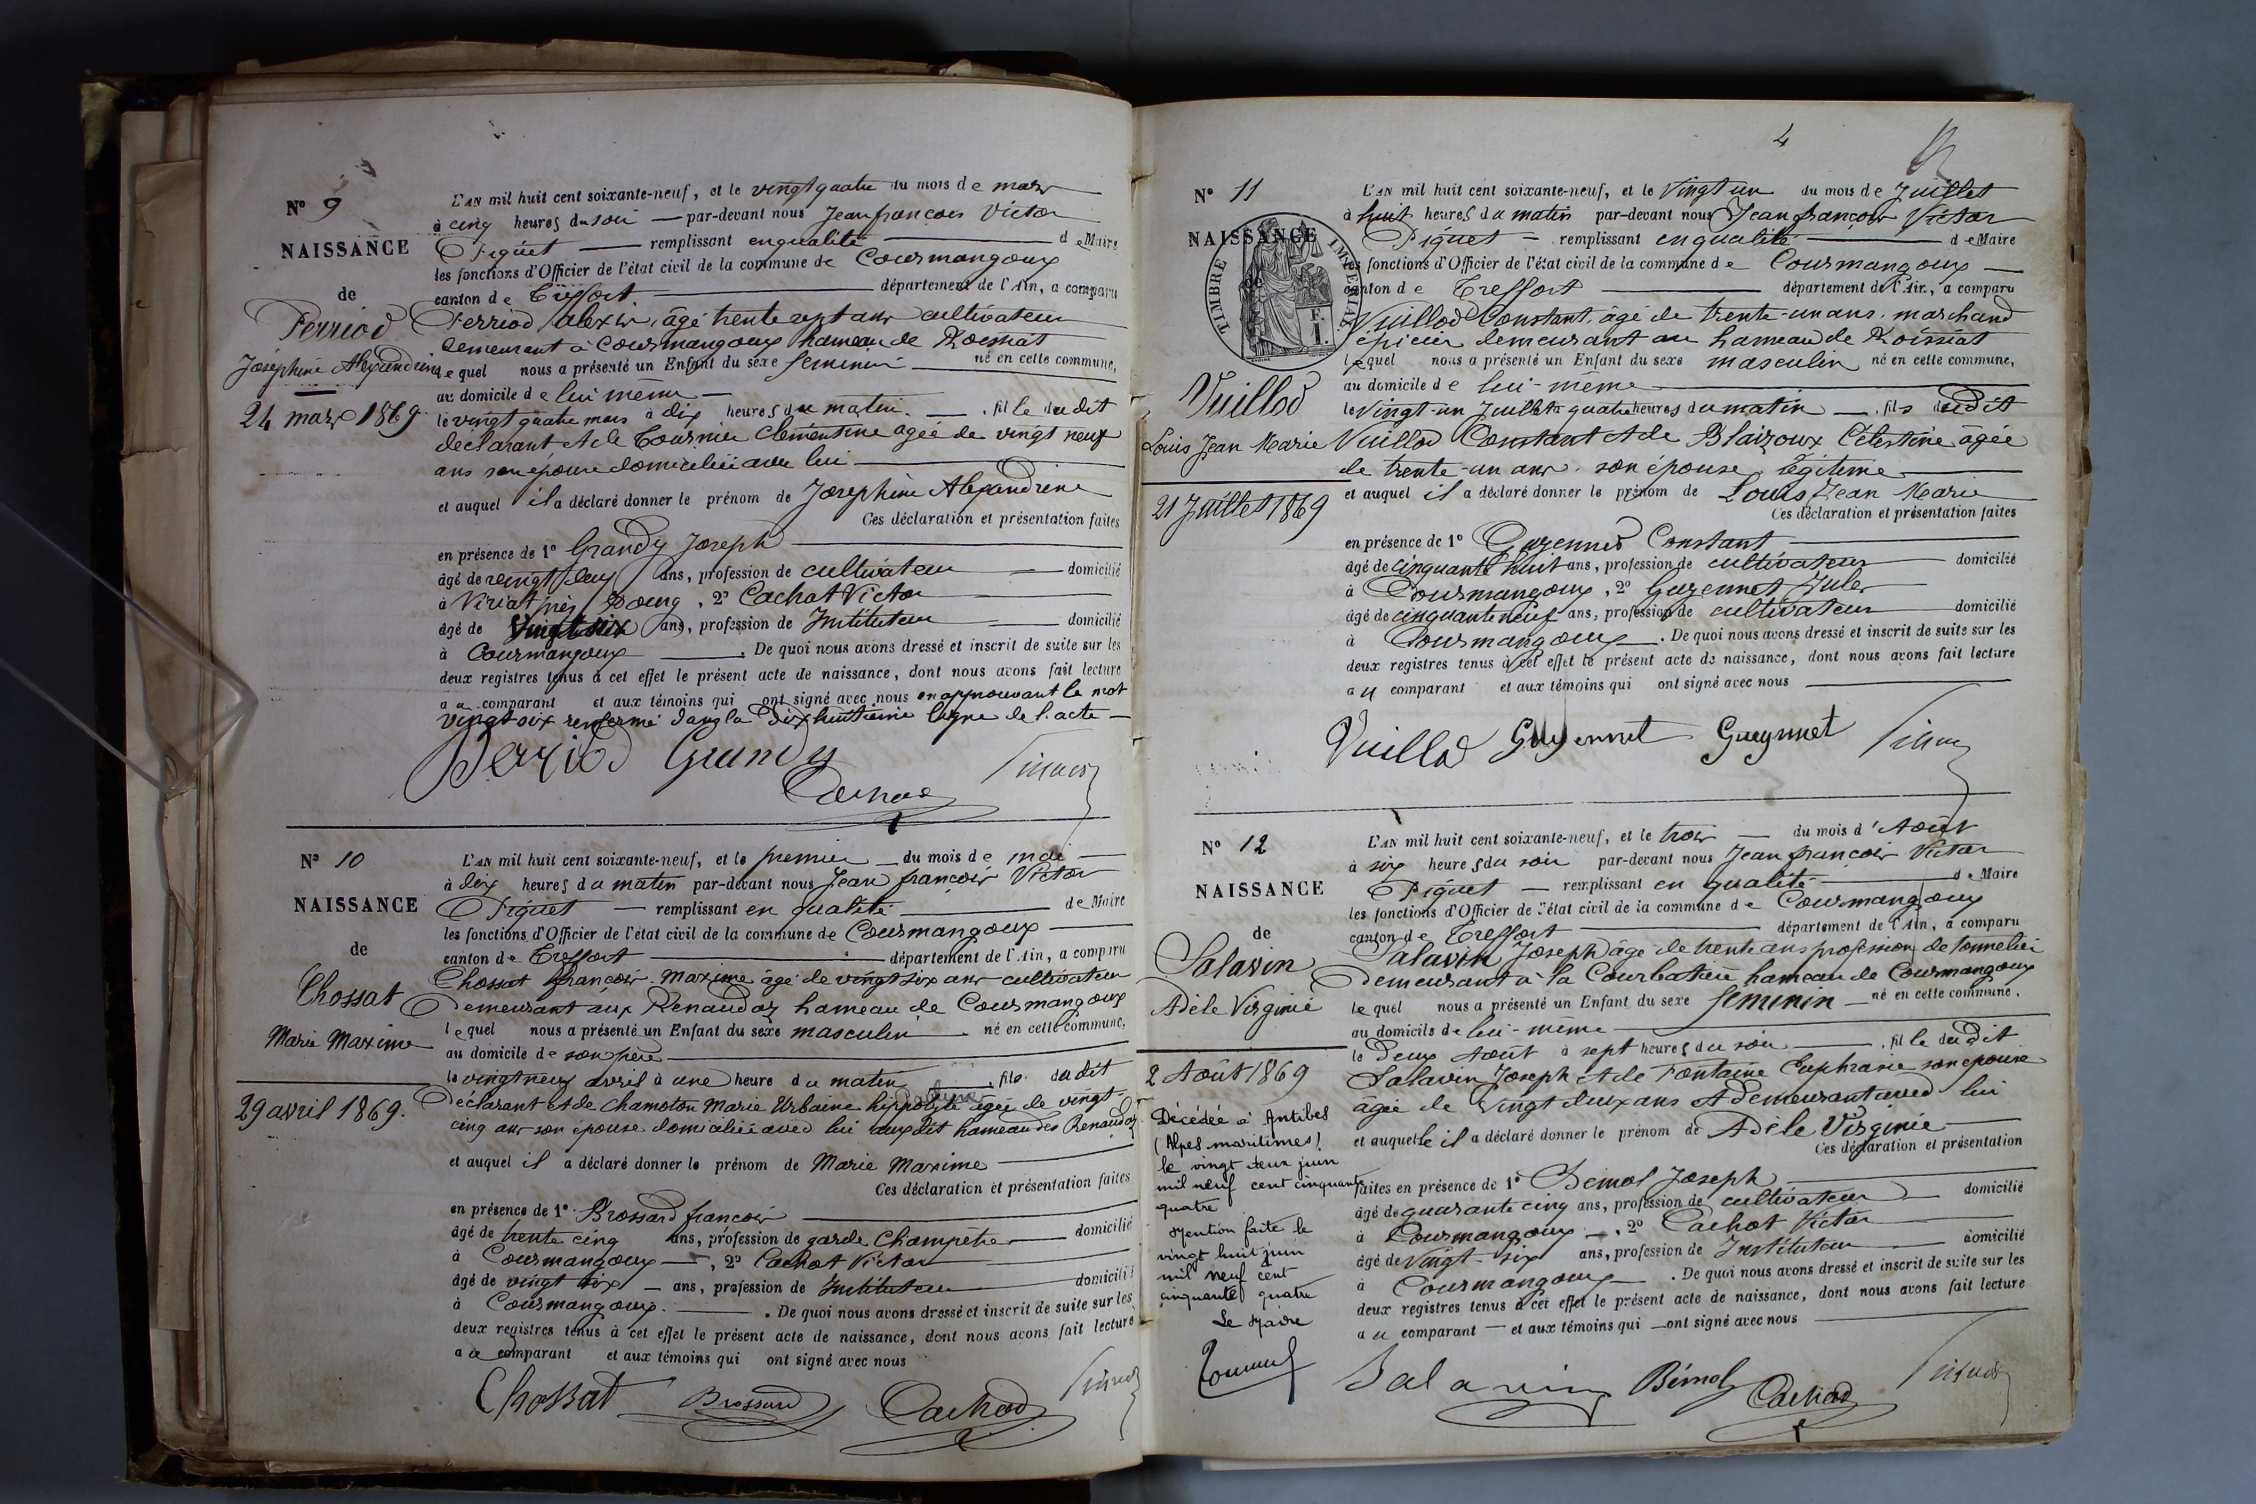 Nº 9
NAISSANCE
de
Ferriod
Joséphine Alexandrine
24 mars 1869
L'AN mil huit cent soixante-neuf, et le vingt quatre du mois de mars
à cinq heures du soir — par-devant nous Jean françois Victor
Piguet — remplissant en qualité — de Maire
les fonctions d'Officier de l'état civil de la commune de Courmangoux
canton de Treffort — département de l'Ain, a comparu
Ferriod Alexis, âgé trente sept ans cultivateur
demeurant à Courmangoux hameau de Roissiat
lequel nous a présenté un Enfant du sexe féminin — né en cette commune,
au domicile de lui même —
le vingt quatre mars à dix heures du matin — , fille du dit
déclarant et de Tournier Clémentine agée de vingt neuf
ans son épouse domiciliée avec lui —
et auquel il a déclaré donner le prénom de Joséphine Alexandrine
Ces déclaration et présentation faites
en présence de 1º Grandy Joseph —
âgé de vingt deux ans, profession de cultivateur — domicilié
à Viriat près Bourg, 2º Cachot Victor —
âgé de vingt six ans, profession de Instituteur — domicilié
à Courmangoux — . De quoi nous avons dressé et inscrit de suite sur les
deux registres tenus à cet effet le présent acte de naissance, dont nous avons fait lecture
au comparant et aux témoins qui ont signé avec nous en approuvant le mot
vingt six renfermé dans la dix huitième ligne de l'acte —
Ferriod Grandy
Cachot
Nº 10
NAISSANCE
de
Chossat
Marie Maxime
29 avril 1869.
L'AN mil huit cent soixante-neuf, et le premier — du mois de mai —
à dix heures du matin par-devant nous Jean françois Victor
Piguet — remplissant en qualité — de Maire
les fonctions d'Officier de l'état civil de la commune de Courmangoux —
canton de Treffort — département de l'Ain, a comparu
Chossat françois Maxime âgé de vingt six ans cultivateur
Demeurant aux Renaudas hameau de Courmangoux
lequel nous a présenté un Enfant du sexe masculin — né en cette commune,
au domicile de son père —
le vingt neuf avril à une heure du matin — , fils du dit
Déclarant et de Chamoton Marie Urbaine hippolyte agée de vingt-
cinq ans son épouse domiciliée avec lui aux dit hameau des Renaudas
et auquel il a déclaré donner le prénom de Marie Maxime —
Ces déclaration et présentation faites
en présence de 1º Brossard françois —
âgé de trente cinq ans, profession de garde Champêtre — domicilié
à Courmangoux — , 2º Cachot Victor —
âgé de vingt six — ans, profession de Instituteur — domicilié
à Courmangoux. — . De quoi nous avons dressé et inscrit de suite sur les
deux registres tenus à cet effet le présent acte de naissance, dont nous avons fait lecture
au comparant et aux témoins qui ont signé avec nous
Chossat Brossard Cachot
4
Nº 11
NAISSANCE
de
TIMBRE IMPERIAL
F.
1.
Vuillod
Louis Jean Marie
21 Juillet 1869
L'AN mil huit cent soixante-neuf, et le Vingt un du mois de Juillet
à huit heures du matin par-devant nous Jean françois Victor
Piguet — remplissant en qualité — de Maire
les fonctions d'Officier de l'état civil de la commune de Courmangoux —
canton de Treffort — département de l'Ain, a comparu
Vuillod Constant, âgé de trente-un ans, marchand
épicier demeurant au hameau de Roissiat
lequel nous a présenté un Enfant du sexe masculin né en cette commune,
au domicile de lui-même —
le Vingt-un Juillet à quatre heures du matin — , fils dudit
Vuillod Constant et de Blaizoux Célestine âgée
de trente-un ans, son épouse légitime —
et auquel il a déclaré donner le prénom de Louis Jean Marie
Ces déclaration et présentation faites
en présence de 1º Guyennet Constant —
âgé de cinquante huit ans, profession de cultivateur — domicilié
à Courmangoux, 2º Guyennet Jules —
âgé de cinquante neuf ans, profession de cultivateur — domicilié
à Courmangoux — . De quoi nous avons dressé et inscrit de suite sur les
deux registres tenus à cet effet le présent acte de naissance, dont nous avons fait lecture
au comparant et aux témoins qui ont signé avec nous —
Vuillod Guyennet Gueynnet
Nº 12
NAISSANCE
de
Salavin
Adèle Virginie
2 Août 1869
Décédée à Antibes
(Alpes maritimes)
le vingt deux juin
mil neuf cent cinquante
quatre
Mention faite le
vingt huit juin
mil neuf cent
cinquante quatre
Le Maire
L'AN mil huit cent soixante-neuf, et le trois — du mois d'Août
à six heures du soir par-devant nous Jean françois Victor
Piguet — remplissant en qualité — de Maire
les fonctions d'Officier de l'état civil de la commune de Courmangoux
canton de Treffort — département de l'Ain, a comparu
Salavin Joseph âgé de trente ans profession de tonnelier
Demeurant à la Courbatière hameau de Courmangoux
lequel nous a présenté un Enfant du sexe féminin — né en cette commune.
au domicile de lui-même —
le Deux Août à sept heures du soir — , fille du dit
Salavin Joseph et de Fontaine Euphrasie son épouse
âgée de Vingt deux ans et Demeurant avec lui
et auquelle il a déclaré donner le prénom de Adèle Virginie —
Ces déclaration et présentation
faites en présence de 1º Bémol Joseph —
âgé de quarante cinq ans, profession de cultivateur — domicilié
à Courmangoux —, 2º Cachot Victor —
âgé de Vingt-six ans, profession de Instituteur — domicilié
à Courmangoux — . De quoi nous avons dressé et inscrit de suite sur les
deux registres tenus à cet effet le présent acte de naissance, dont nous avons fait lecture
au comparant — et aux témoins qui — ont signé avec nous —
Salavin Bémol Cachot